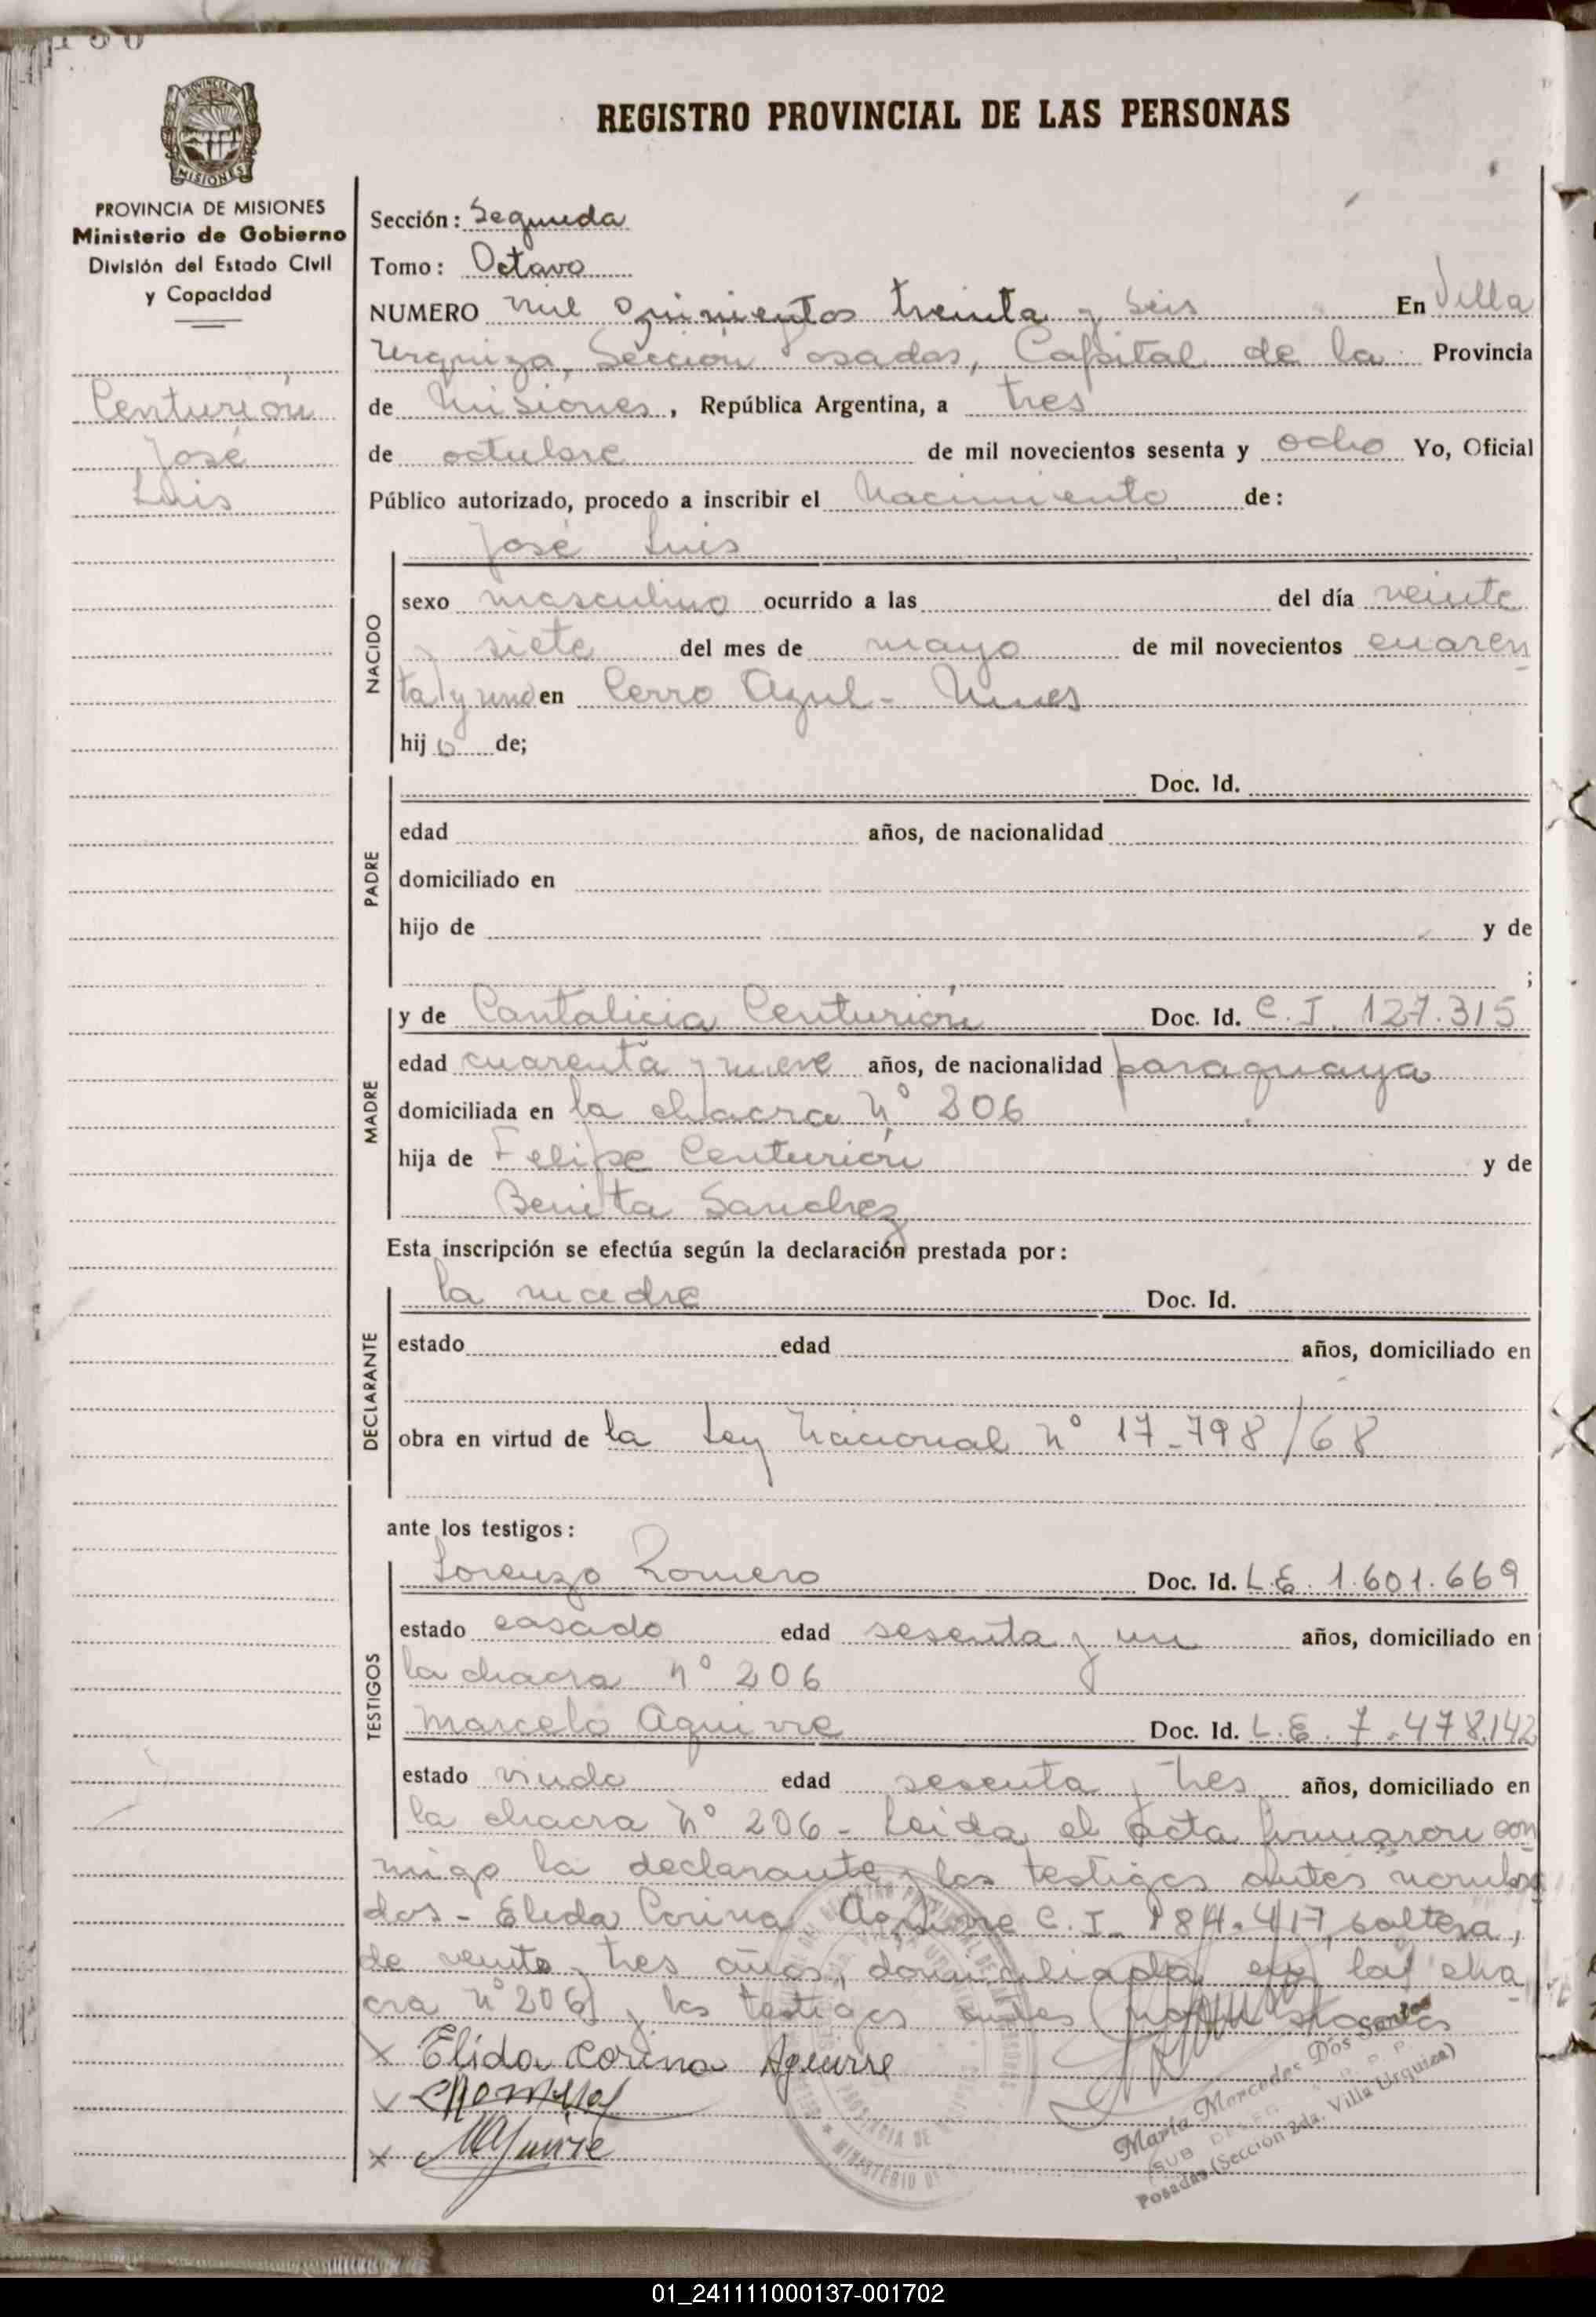 REGISTRO PROVINCIAL DE LAS PERSONAS
PROVINCIA DE MISIONES
Ministerio de Gobierno
División del Estado Civil
y Capacidad
Centurión
José
Luis
Sección: Segunda
Tomo: Octavo
NUMERO mil quinientos treinta y seis En Villa
Urquiza, Sección Posadas, Capital de la Provincia
de Misiones, República Argentina, a tres
de octubre de mil novecientos sesenta y ocho Yo, Oficial
Público autorizado, procedo a inscribir el Nacimiento de:
José Luis
NACIDO
sexo masculino ocurrido a las del día veinte
y siete del mes de mayo de mil novecientos cuaren
ta y uno en Cerro Azul - Mnes
hijo de;
PADRE
Doc. Id.
edad años, de nacionalidad
domiciliado en
hijo de y de
;
MADRE
y de Cantalicia Centurión Doc. Id. C. I. 127.315
edad cuarenta y nueve años, de nacionalidad paraguaya
domiciliada en la chacra Nº 206
hija de Felipe Centurión y de
Benita Sanchez
Esta inscripción se efectúa según la declaración prestada por:
DECLARANTE
la madre Doc. Id.
estado edad años, domiciliado en
obra en virtud de la Ley Nacional nº 17-798/68
ante los testigos:
TESTIGOS
Lorenzo Romero Doc. Id. L.E. 1.601.669
estado casado edad sesenta y un años, domiciliado en
la chacra nº 206
Marcelo Aguirre Doc. Id. L.E. 7.478.142
estado viudo edad sesenta y tres años, domiciliado en
la chacra Nº 206 - Leida el acta firmaron con
migo la declarante y los testigos antes nombra
dos - Elida Corina Aguirre C. I. 184.417, soltera,
de veinte y tres años, domiciliada en la cha
cra nº 206) y los testigos antes
Elida Corina Aguirre
María Mercedes Dos Santos
Posadas (Sección 2da. Villa Urquiza)
01_241111000137-001702